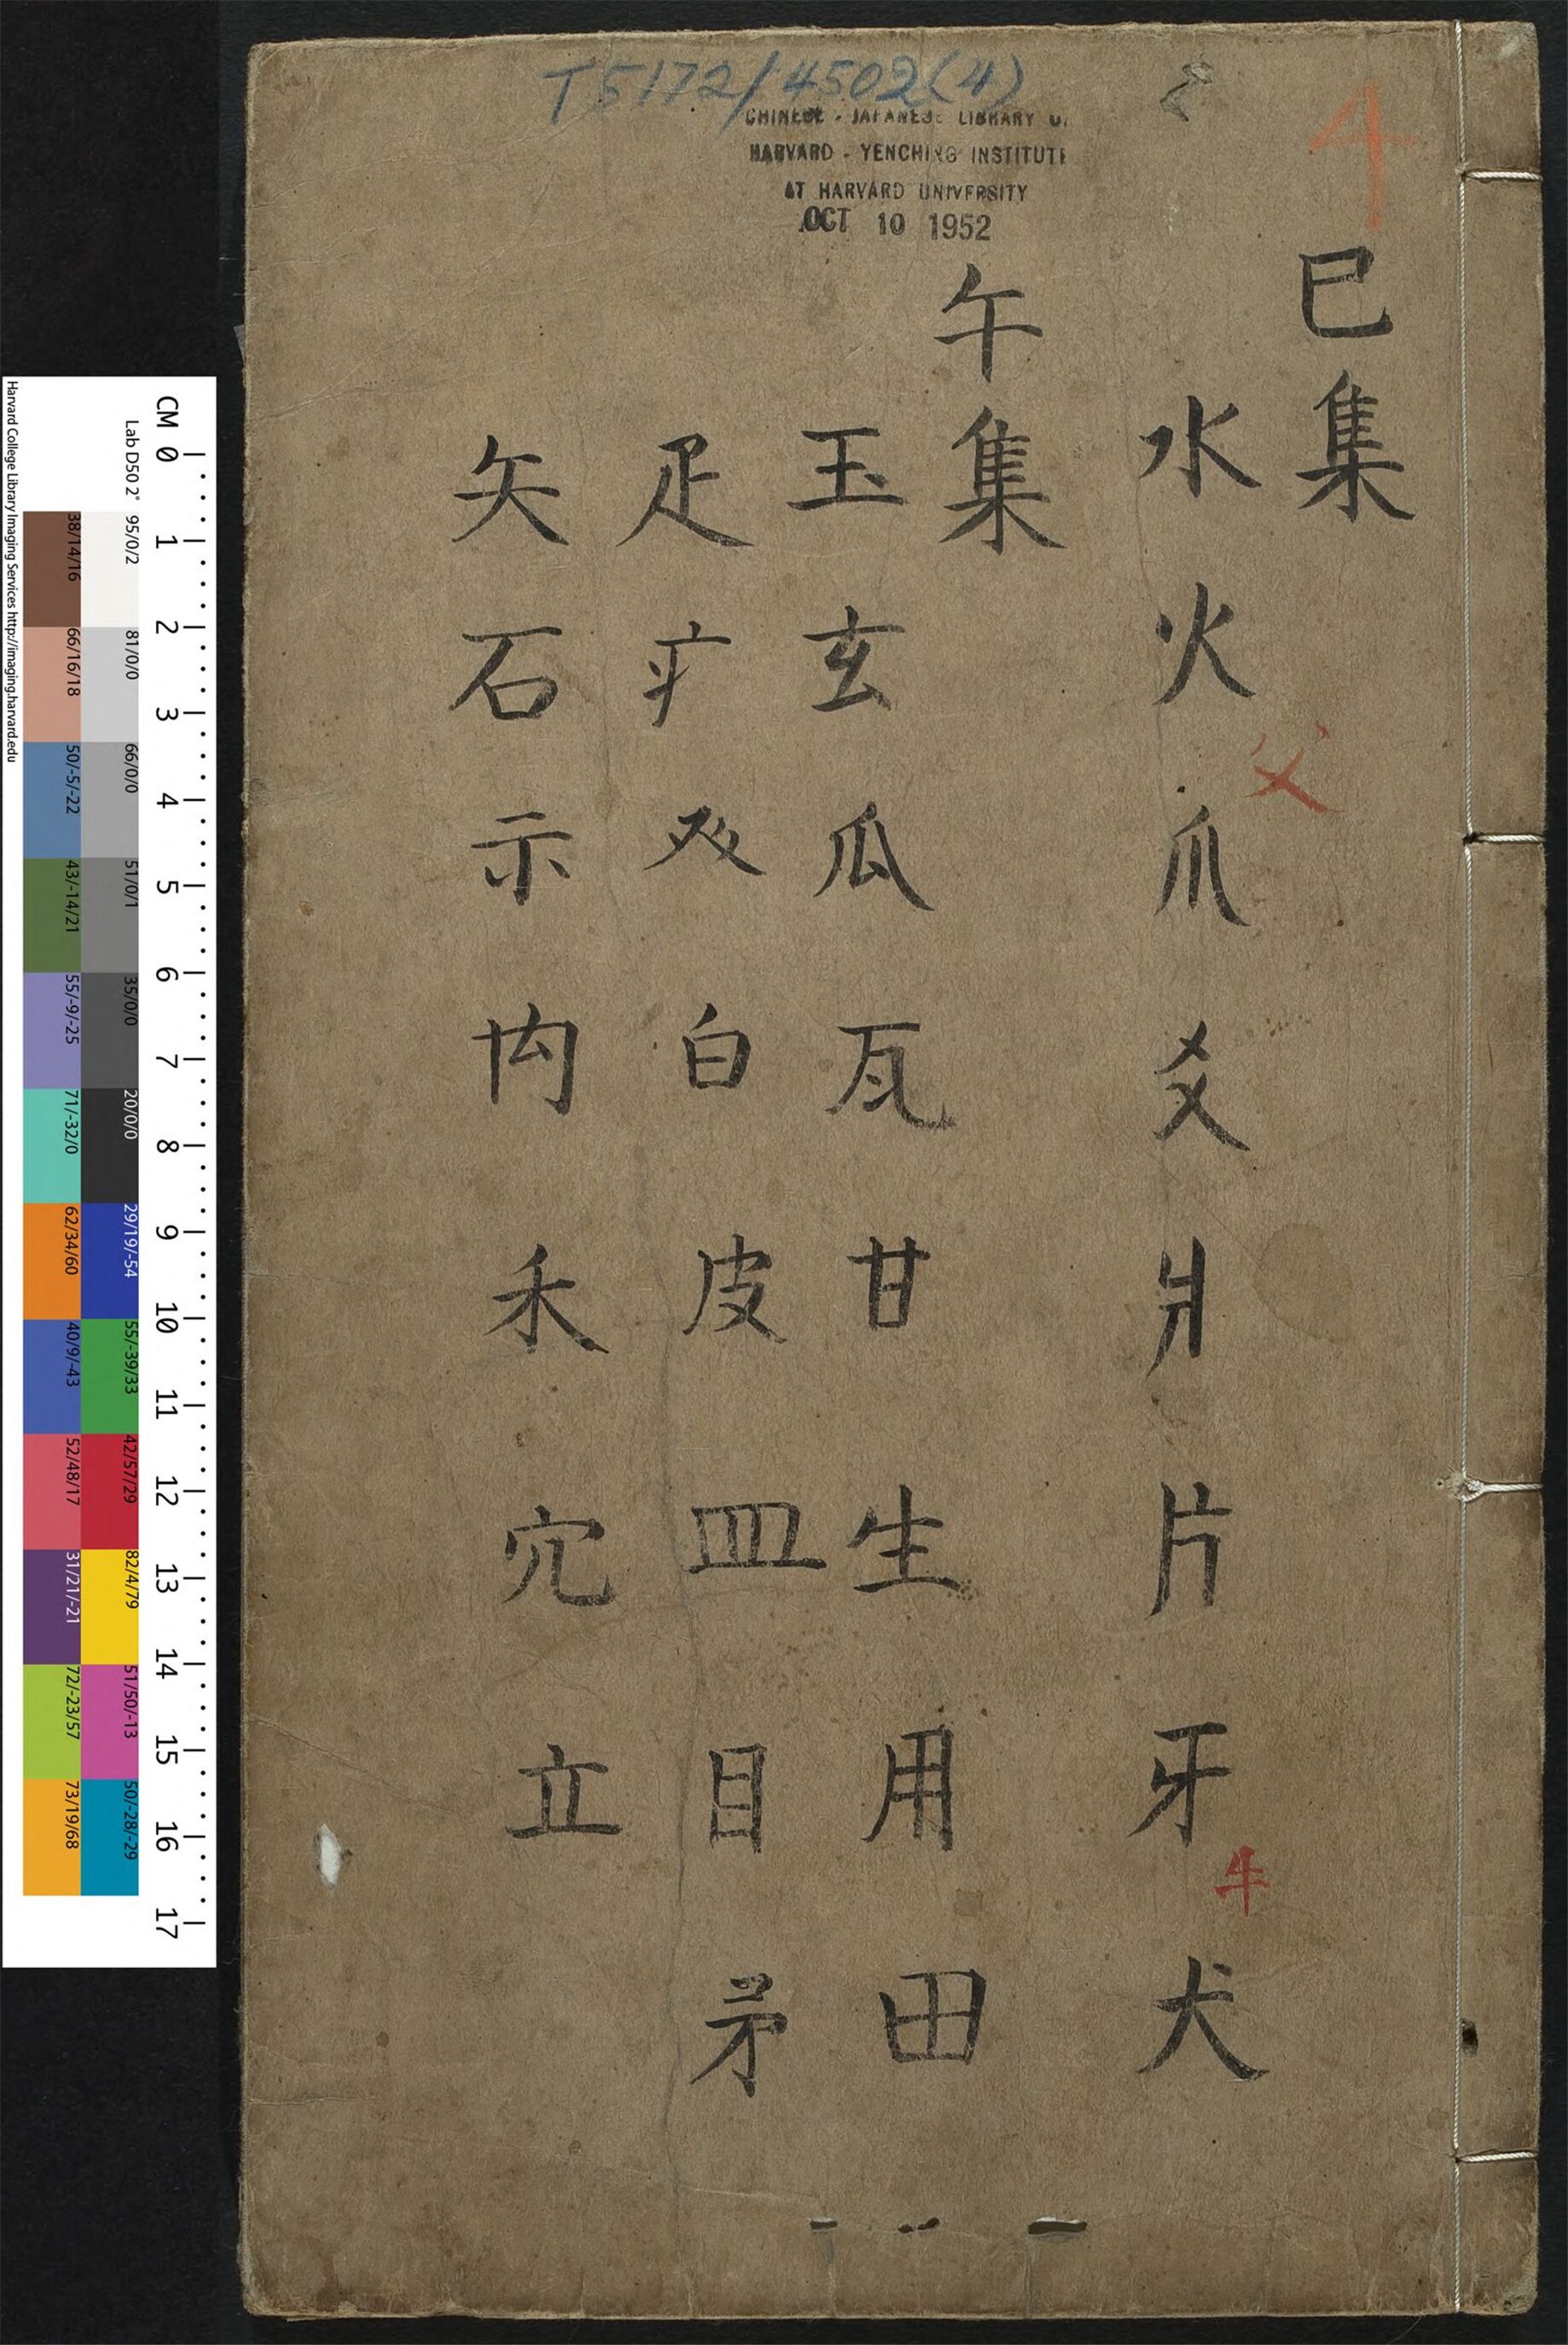 T5172/4502(4)
CHINESE - JAPANESE LIBRARY O
HARVARD - YENCHING INSTITUTE
AT HARVARD UNIVERSITY
OCT 10 1952
4
巳集
水火父爪爻爿片牙牛犬
午集
玉玄瓜瓦甘生用田
疋疒癶白皮皿目矛
矢石示禸禾穴立
CM 0 1 2 3 4 5 6 7 8 9 10 11 12 13 14 15 16 17
Lab D50 2° 95/0/2 81/0/0 66/0/0 51/0/1 35/0/0 20/0/0 29/19/-54 55/-39/33 42/57/29 82/4/79 51/50/-13 50/-28/-29
38/14/16 66/16/18 50/-5/-22 43/-14/21 55/-9/-25 71/-32/0 62/34/60 40/9/-43 52/48/17 31/21/-21 72/-23/57 73/19/68
Harvard College Library Imaging Services http://imaging.harvard.edu